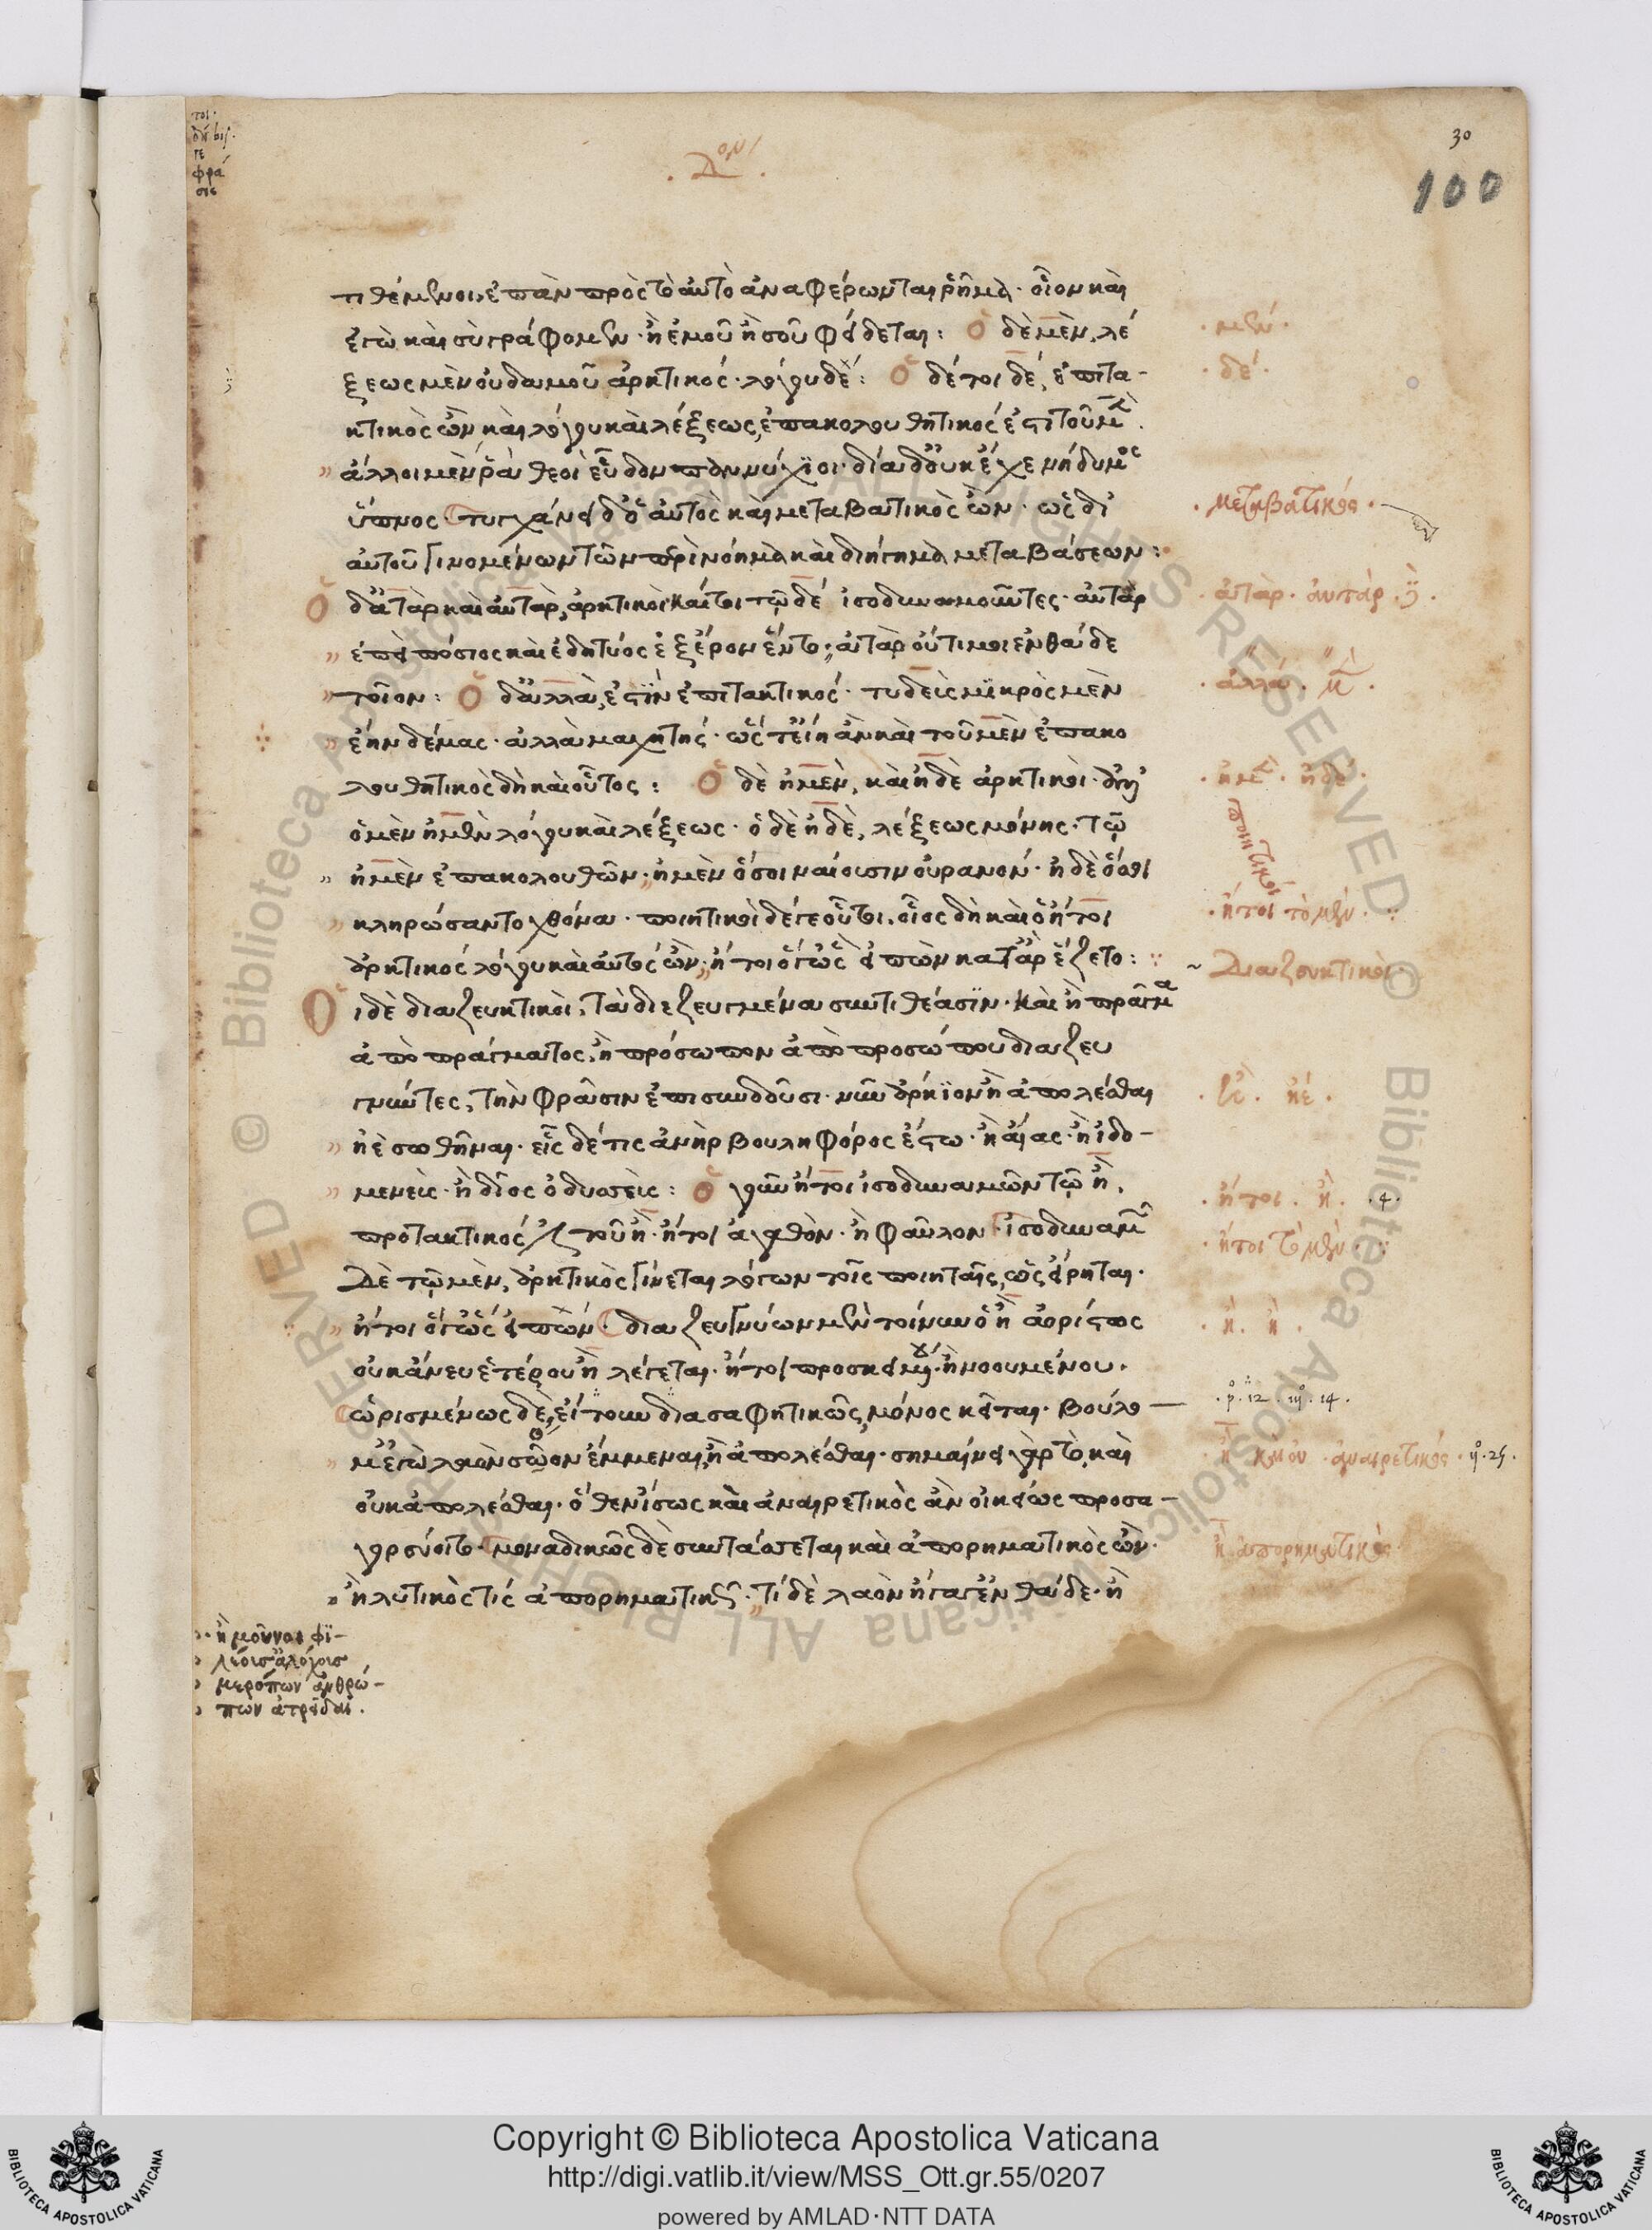 30
100
.Δον.
τιθέμενοι, ἐπὰν πρὸς τὸ αὐτὸ ἀναφέρωνται ῥῆμα· οἷον καὶ
ἐγὼ καὶ σὺ γράφομεν· ἢ ἐμοῦ ἢ σοῦ φείδεται: Ὁ δὲ μὲν, λέ
ξεως μὲν οὐδαμοῦ ἀρκτικός· λόγου δέ: Ὁ δέ τοι δέ, ἐπιτα-
κτικὸς ὢν καὶ λόγου καὶ λέξεως, ἐπακολουθητικός ἐστι τοῦ μέν.
ἄλλοι μὲν ῥὰ θεοὶ εὗδον παννύχϊοι· δία δ' οὐκ ἔχε νήδυμος
ὕπνος· τυγχάνει δ' ὁ αὐτὸς καὶ μεταβατικὸς ὤν· ὡς δι'
αὐτοῦ γινομένων τῶν περὶ νόημα καὶ διήγημα μεταβάσεων:
Ὁ δ' ἀτὰρ καὶ αὐτὰρ, ἀρκτικοὶ καί τοι τῷ δέ ἰσοδυναμοῦντες· αὐτὰρ
ἐπεὶ πόσιος καὶ ἐδητύος ἐξ ἔρον ἕντο; ἀτὰρ οὔτι μοι ἐνθάδε
τοῖον: Ὁ δ' ἀλλὰ, ἐστὶν ἐπιτακτικός· τυδεὺς μϊκρὸς μὲν
ἔην δέμας· ἀλλὰ μαχητής· ὥς τ' εἴη ἂν καὶ τοῦ μὲν ἐπακο
λουθητικὸς δὴ καὶ οὗτος: Ὁ δὲ ἠμὲν, καὶ ἠδὲ ἀρκτικοί·
ὁ μὲν ἠμὲν λόγου καὶ λέξεως· ὁ δὲ ἠδὲ, λέξεως μόνης· τῷ
ἠμὲν ἐπακολουθῶν· ἠμὲν ὅσοι ναίουσιν οὐρανόν· ἠδὲ ὅσοι
κληρώσαντο χθόνα· ποιητικοὶ δέ γε οὗτοι. οἷος δὴ καὶ ὁ ἤτοι
ἀρκτικός λόγου καὶ αὐτὸς ὤν· ἤτοι ὅγ' ὣς εἰπὼν κατ' ἄρ ἕζετο:
Οἱ δὲ διαζευκτικοὶ, τὰ διεζευγμένα συντιθέασϊν· καὶ ἢ πρᾶγμα
ἀπὸ πράγματος, ἢ πρόσωπον ἀπὸ προσώπου διαζευ
γνύντες, τὴν φράσιν ἐπισυνδοῦσι· νῦν ἄρκϊον ἢ ἀπολέσθαι
ἠὲ σωθῆναι· εἷς δέ τις ἀνὴρ βουληφόρος ἔστω· ἢ αἴας· ἢ ἰδο-
μενεὺς· ἢ δῖος ὀδυσσεὺς: Ὁ γοῦν ἤτοι ἰσοδυναμῶν τῷ ἢ,
προτακτικός ἐστι τοῦ ἢ· ἤτοι ἀγαθὸν· ἢ φαῦλον· ἰσοδυναμῶν
Δὲ τῷ μὲν, ἀρκτικὸς γίνεται λόγων τοῖς ποιηταῖς, ὡς εἴρηται·
ἤτοι ὅγ' ὣς εἰπών· διαζευγνύων μὲν τοίνυν ὁ ἢ ἀορίστως
οὐκ ἄνευ ἑτέρου ἢ λέγεται· ἤτοι προσκειμένου· ἢ νοουμένου.
ὡρισμένως δὲ, εἴτουν διασαφητικῶς, μόνος κεῖται· βούλο—
μ' ἐγὼ λαὸν σῶον ἔμμεναι, ἢ ἀπολέσθαι· σημαίνει γὰρ τὸ, καὶ
οὐκ ἀπολέσθαι· ὅθεν ἴσως καὶ ἀναιρετικὸς ἂν οἰκείως προσα—
γορεύοιτο· μοναδικῶς δὲ συντάσσεται καὶ ἀπορηματικὸς ὤν·
ἢ λυτικὸς τίς ἀπορηματικῶς· τί δὲ λαὸν ἤγαγ' ἐνθάδε· ἢ
ἢ μοῦνοι φϊ-
λέουσ' ἀλόχους
μερόπων ἀνθρώ-
πων ἀτρεῖδαι.
·μέν·
·δέ·
·μεταβατικός·
·ἀτὰρ· αὐτάρ·
·ἀλλά·
·ἠμέν· ἠδέ·
ποιητικοί
·ἤτοι τὸ μέν·
Διαζευκτικοί·
·ἤ· ἠέ·
·ἤτοι· ἢ· ·4·
·ἤτοι τὸ μέν·
·ἢ· ἢ·
·12· ·14·
ἢ ἀναιρετικός·
ἢ ἀπορηματικός
Copyright © Biblioteca Apostolica Vaticana
http://digi.vatlib.it/view/MSS_Ott.gr.55/0207
powered by AMLAD·NTT DATA
BIBLIOTECA APOSTOLICA VATICANA
BIBLIOTECA APOSTOLICA VATICANA